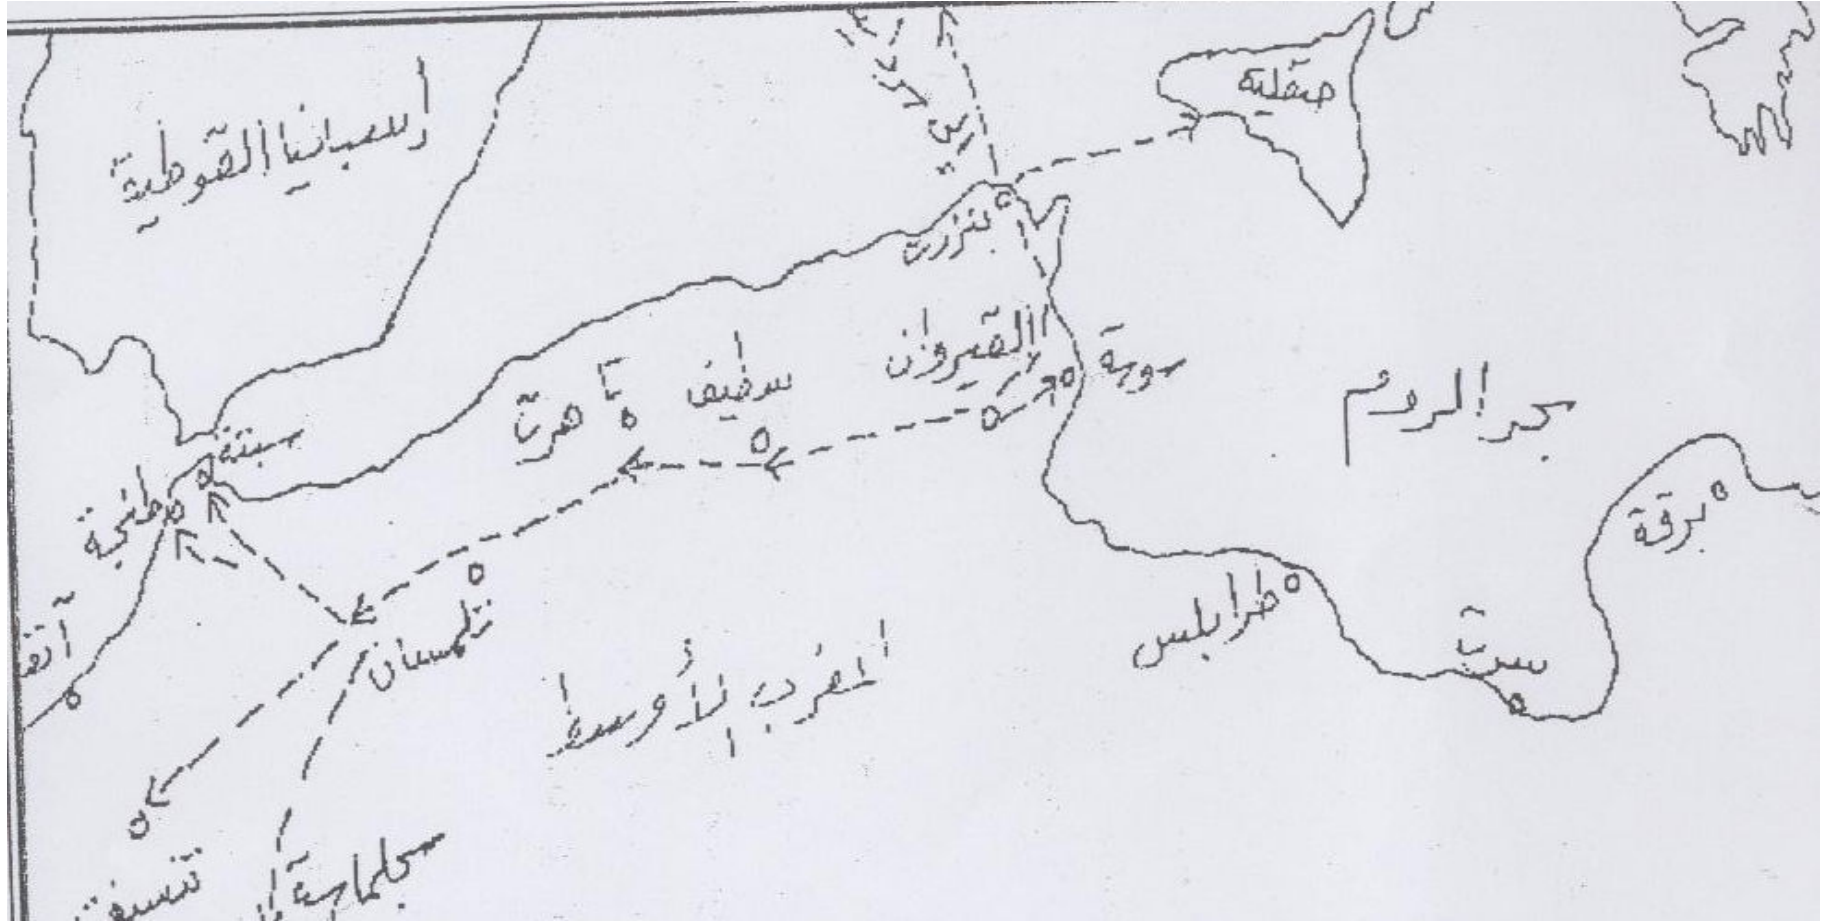 أسبانيا القوطية
صقلية
بنزرت
القيروان
سطيف
تاهرت
سوسة
بحر الروم
سبتة
طنجة
برقة
طرابلس
سرت
تلمسان
المغرب الأوسط
سجلماسة